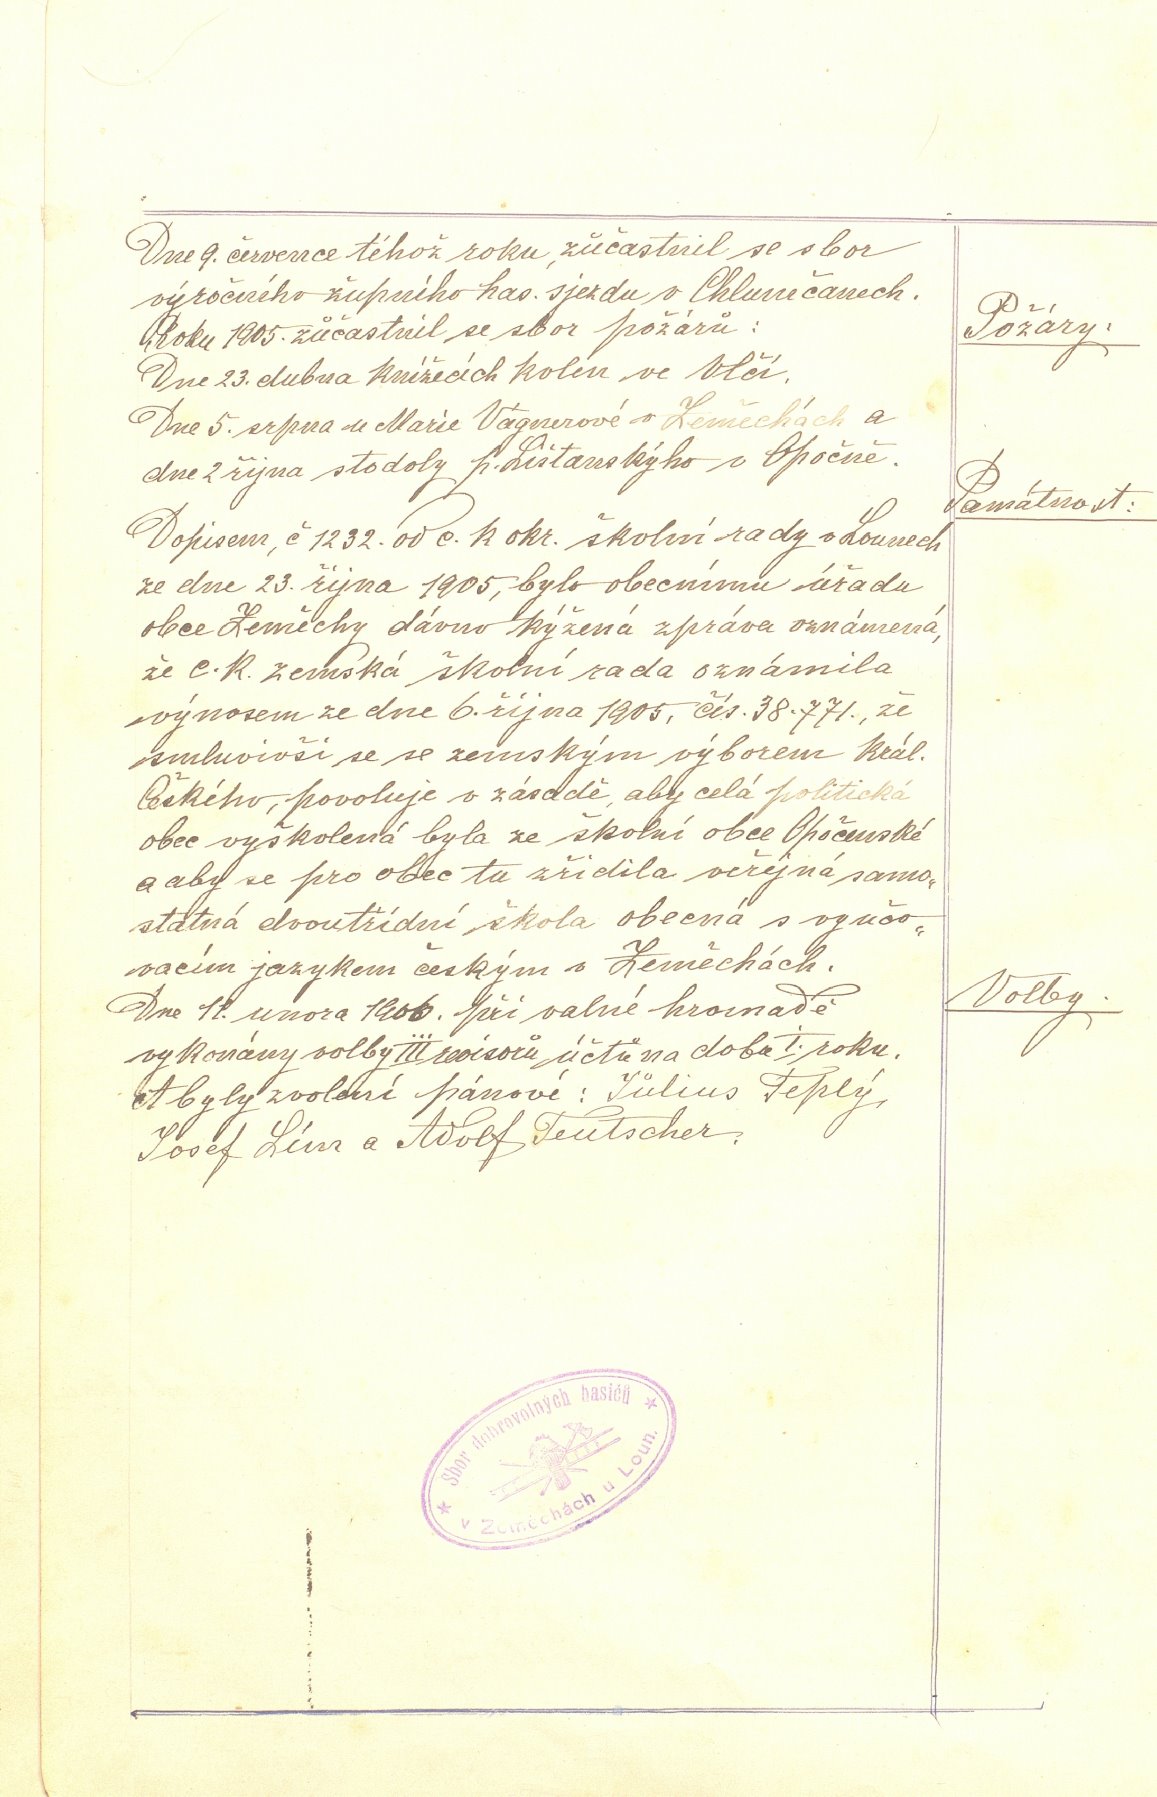 Dne 9. července téhož roku, zůčastnil se sbor
výročního župního has. sjezdu v Chlumčanech.
Požáry:
Roku 1905. zůčastnil se sbor požárů:
Dne 23. dubna knížecích kolen ve Vlčí.
Dne 5. srpna u Marie Vágnerové v Zeměchách a
dne 2 října stodoly p. Lištanskýho v Opočně.
Památnost:
Dopisem, č 1232. od c. k okr. školní rady v Lounech
ze dne 23. října 1905, bylo obecnímu úřadu
obce Zeměchy dávno kýžená zpráva oznámená,
že c. k. zemská školní rada oznámila
výnosem ze dne 6. října 1905, čís. 38.771., že
smluvivši se se zemským výborem král.
Českého, povoluje v zásadě, aby celá politická
obec vyškolená byla ze školní obce Opočenské
a aby se pro obec tu zřídila veřejná samo„
státná dvoutřídní škola obecná s vyučo„
vacím jazykem českým v Zeměchách.
Volby.
Dne 11. unora 1906. při valné hromadě
vykonány volby III revisorů účtů na dobu I. roku.
A byly zvolení pánové: Július Teplý,
Josef Lím a Adolf Teutscher.
* Sbor dobrovolných hasičů *
v Zeměchách u Loun.